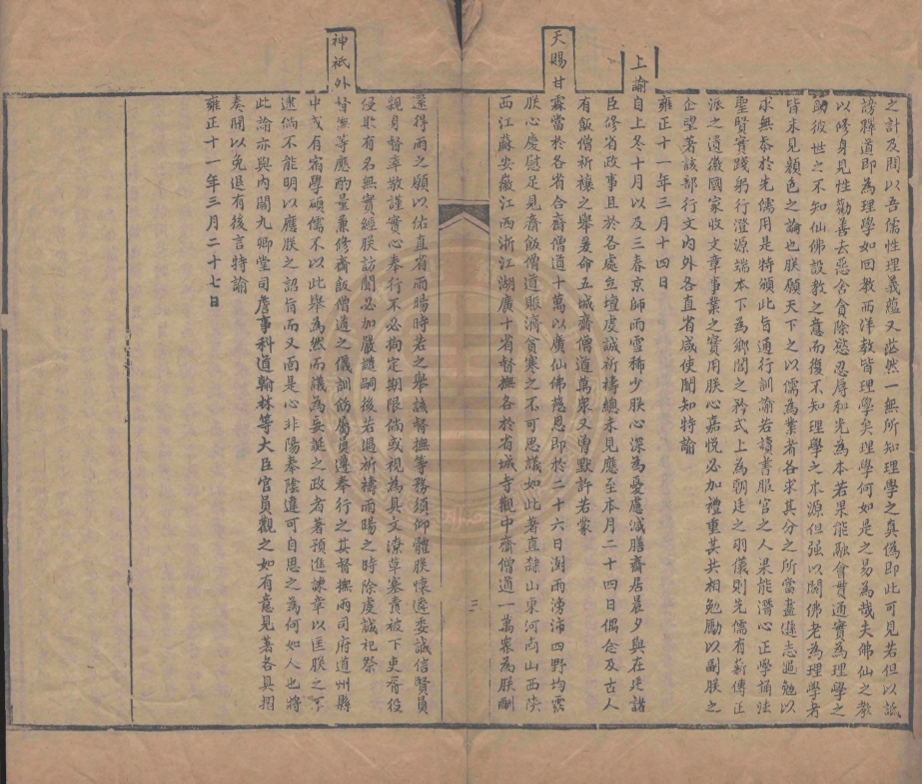 之計及問以吾儒性理義蘊又茫然一無所知理學之真偽即此可見若但以詆
謗釋道即為理學如回教而洋教皆理學矣理學何如是之易為哉夫佛仙之教
以修身見性勸善去惡舍貪除慾忍辱和光為本若果能融會貫通實為理學之
助彼世之不知仙佛設教之意而復不知理學之本源但强以闢佛老為理學者
皆未見顏色之論也朕願天下之以儒為業者各求其分之所當盡遜志黽勉以
求無忝於先儒用是特頒此旨通行訓諭若讀書服官之人果能潛心正學誦法
聖賢實踐躬行澄源端本下為鄉閭之矜式上為朝廷之羽儀則先儒有薪傳正
派之遺徽國家收文章事業之實用朕心嘉悅必加禮重其共相勉勵以副朕之
企望著該部行文內外各直省咸使聞知特諭
雍正十一年三月十四日
上諭自上冬十月以及三春京師雨雪稀少朕心深為憂慮減膳齋居晨夕與在廷諸
臣修省政事且於各處立壇虔誠祈禱總未見應至本月二十四日偶念及古人
有飯僧祈禳之舉爰命五城齋僧道萬衆又曾默許若蒙
天賜甘霖當於各省合齋僧道十萬以廣仙佛慈恩即於二十六日澍雨滂沛四野均霑
朕心慶慰足見齋飯僧道賑濟貧寒之不可思議如此著直隸山東河南山西陝
西江蘇安徽江西浙江湖廣十省督撫各於省城寺觀中齋僧道一萬衆為朕酬
還得雨之願以佑直省雨暘時若之舉該督撫等務須仰體朕懷遴委誠信賢員
親身督率敬謹實心奉行不必拘定期限倘或視為具文潦草塞責被下吏胥役
侵欺有名無實經朕訪聞必加嚴譴嗣後若遇祈禱雨暘之時除虔誠祀祭
神祇外督撫等應酌量兼修齋飯僧道之儀訓飭屬員遵奉行之其督撫兩司府道州縣
中或有宿學碩儒不以此舉為然而議為妄誕之政者著預進諫章以匡朕之不
逮倘不能明以應朕之詔旨而又面是心非陽奉陰違可自思之為何如人也將
此諭亦與內閣九卿堂司詹事科道翰林等大臣官員觀之如有意見著各具摺
奏聞以免退有後言特諭
雍正十一年三月二十七日
三